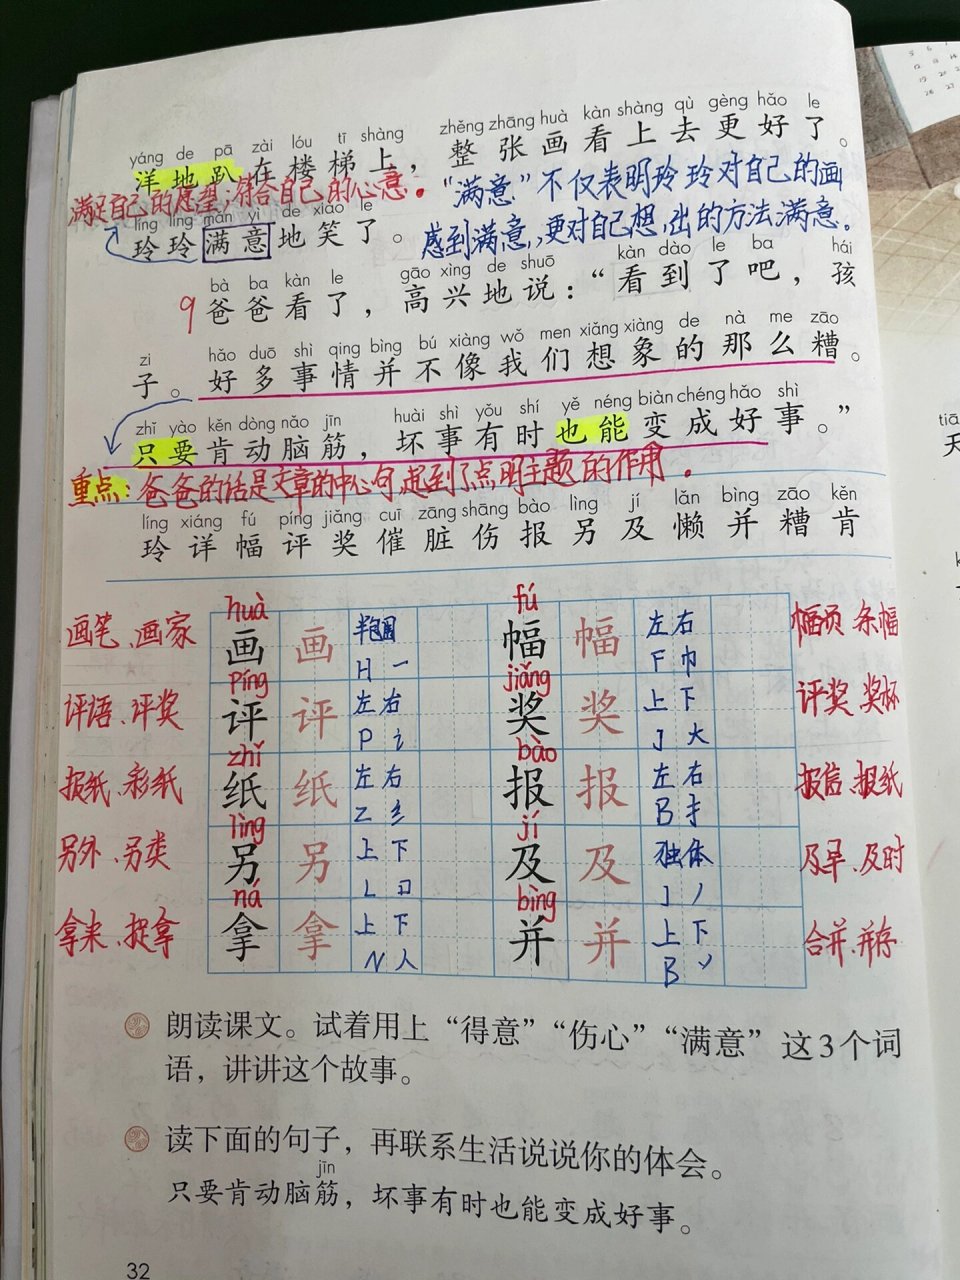 yáng de pā zài lóu tī shàng zhěng zhāng huà kàn shàng qù gèng hǎo le
洋地趴在楼梯上，整张画看上去更好了。
满足自己的愿望；符合自己的心意。
“满意”不仅表明玲玲对自己的画
líng líng mǎn yì de xiào le
玲玲满意地笑了。
感到满意，更对自己想出的方法满意。
bà ba kàn le gāo xìng de shuō kàn dào le ba hái
9 爸爸看了，高兴地说：“看到了吧，孩
zi hǎo duō shì qing bìng bú xiàng wǒ men xiǎng xiàng de nà me zāo
子。好多事情并不像我们想象的那么糟。
zhǐ yào kěn dòng nǎo jīn huài shì yǒu shí yě néng biàn chéng hǎo shì
只要肯动脑筋，坏事有时也能变成好事。”
重点：爸爸的话是文章的中心句，起到了点明主题的作用。
líng xiáng fú píng jiǎng cuī zāng shāng bào lìng jí lǎn bìng zāo kěn
玲详幅评奖催脏伤报另及懒并糟肯
huà fú
画笔、画家 画 画 半包围 幅 幅 左右 幅页 条幅
H 一 F 巾
píng jiǎng
评语、评奖 评 评 左右 奖 奖 上下 评奖 奖杯
P 讠 J 大
zhǐ bào
报纸、彩纸 纸 纸 左右 报 报 左右 报信、报纸
Z 纟 B 扌
lìng jí
另外、另类 另 另 上下 及 及 独体 及早、及时
L 口 J 丿
ná bìng
拿来、捉拿 拿 拿 上下 并 并 上下 合并、并存
N 人 B 丷
朗读课文。试着用上“得意”“伤心”“满意”这3个词
语，讲讲这个故事。
读下面的句子，再联系生活说说你的体会。
jīn
只要肯动脑筋，坏事有时也能变成好事。
32
tiā
天
k